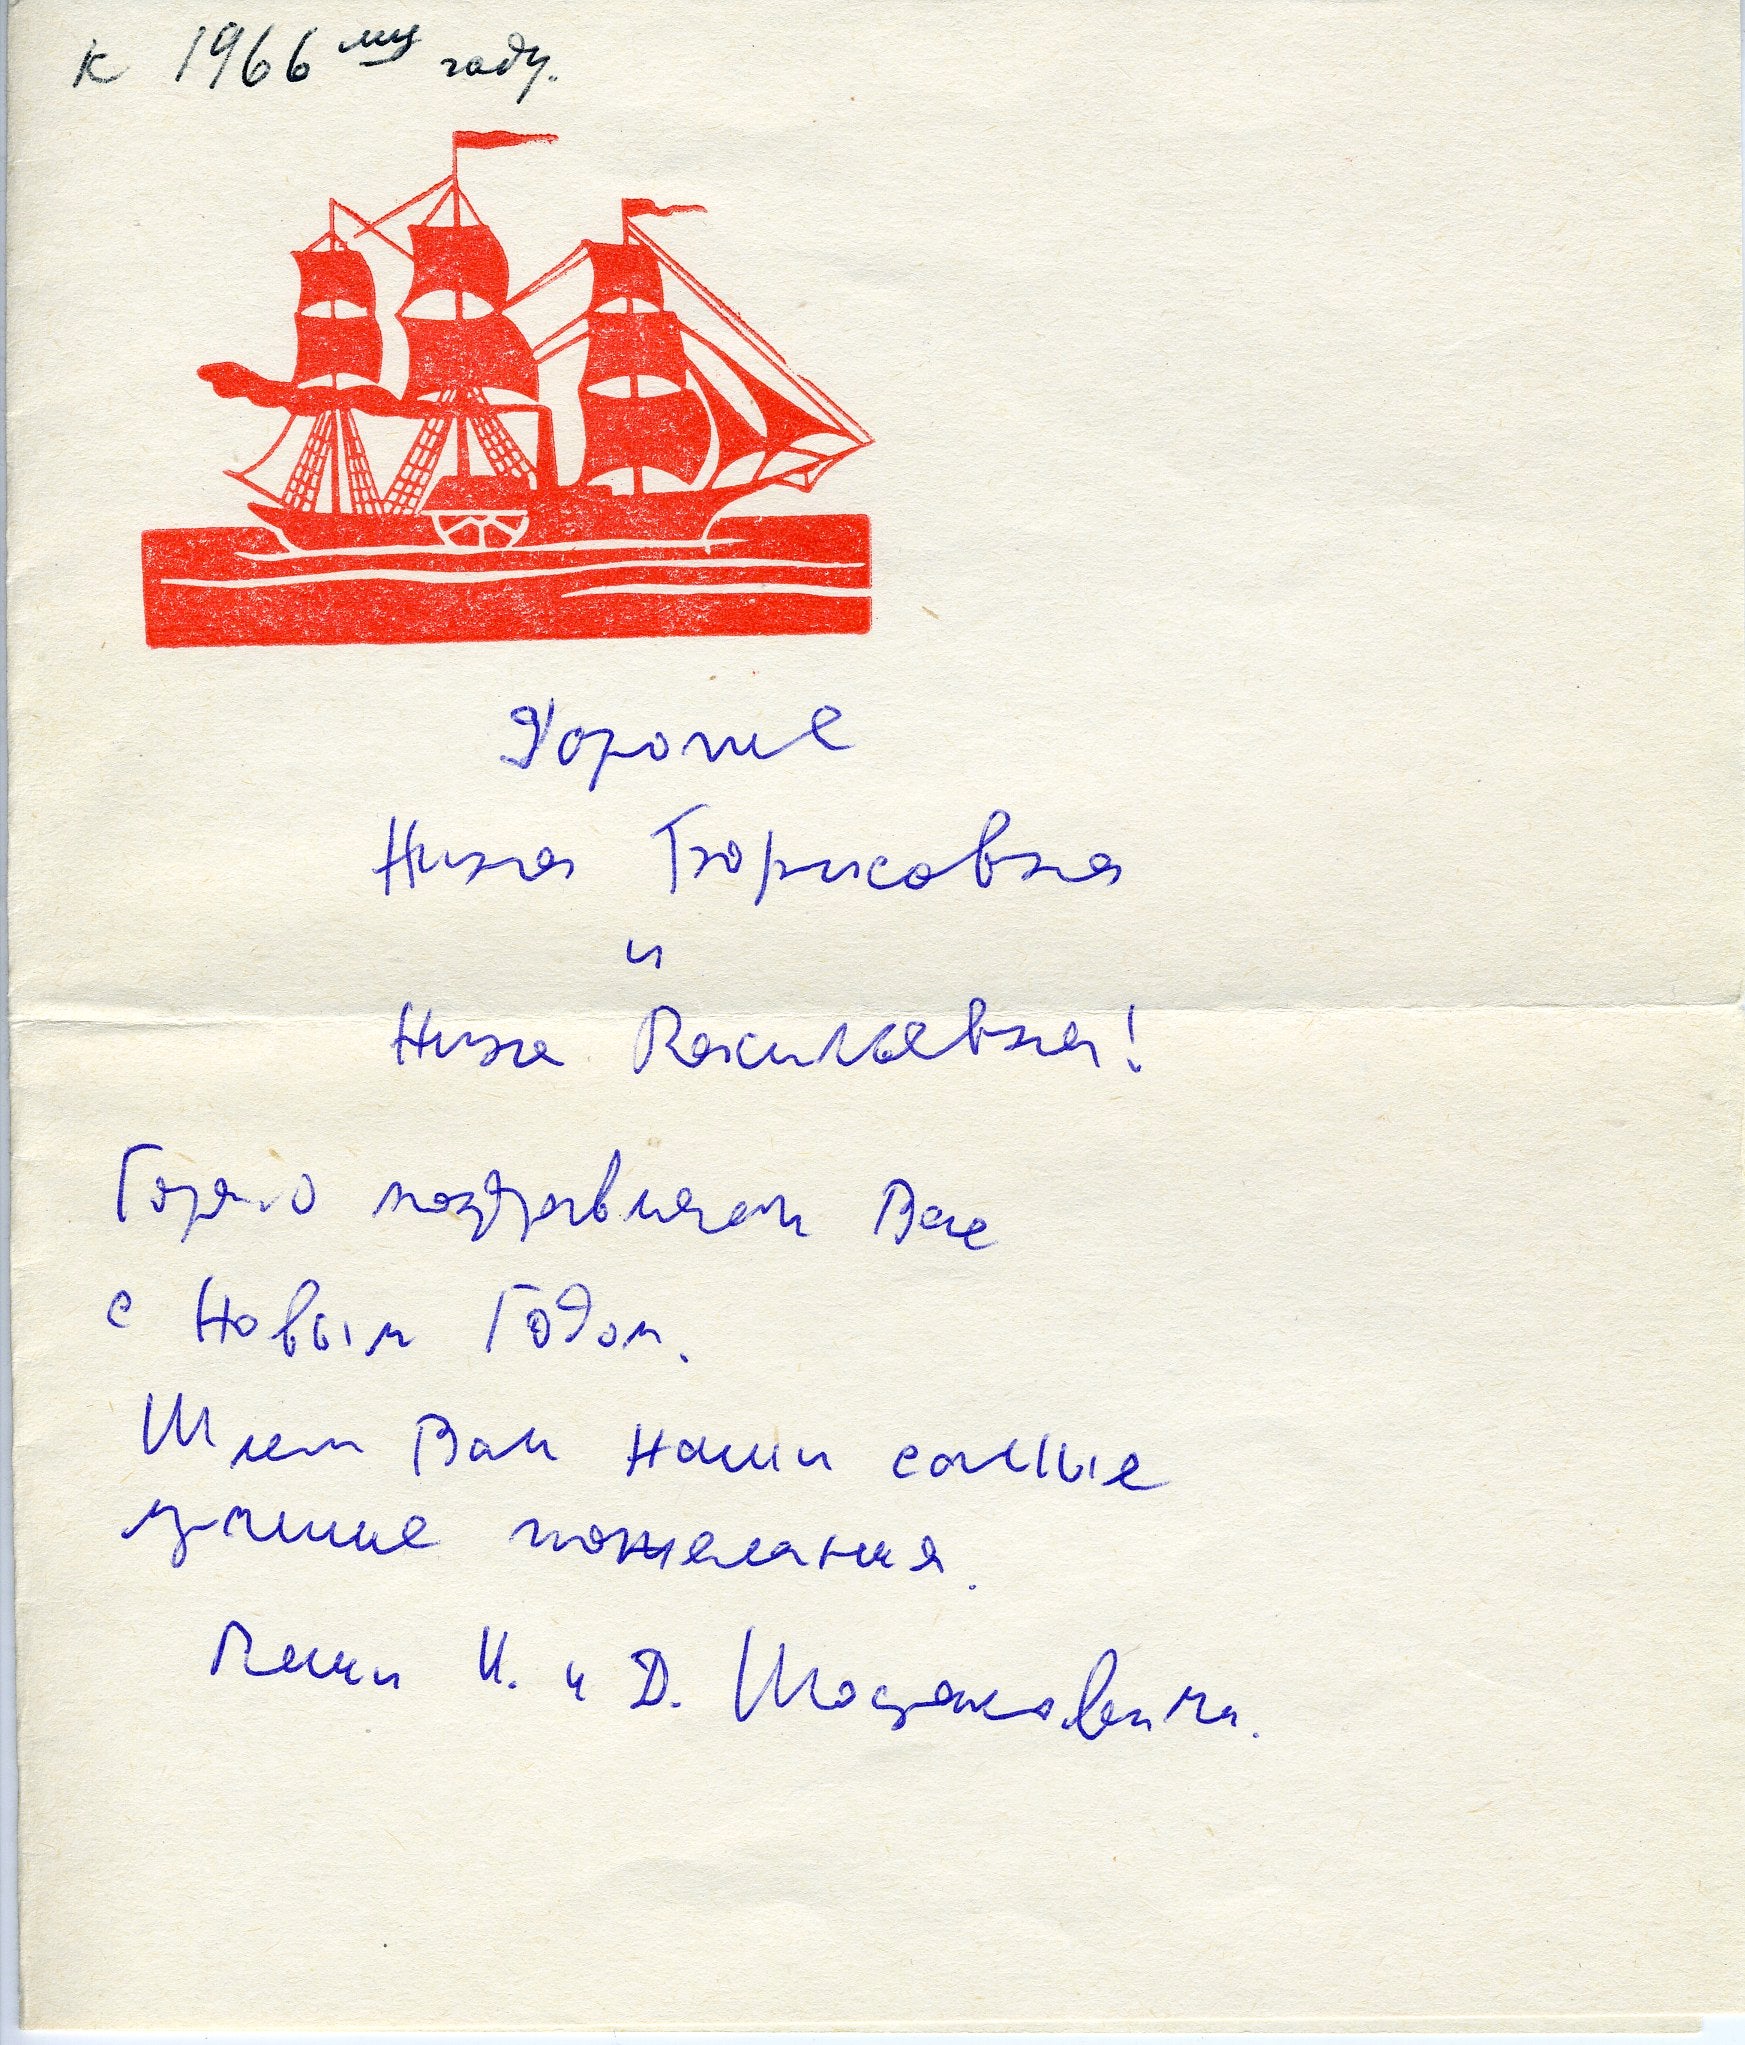 к 1966му году.
Дорогие
Нина Борисовна
и
Нина Васильевна!
Горячо поздравляем Вас
с Новым Годом.
Шлем Вам наши самые
лучшие пожелания.
Ваши И. и Д. Шостаковичи.